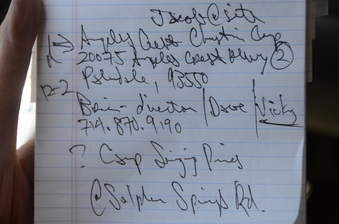 Jacob @ site
→ Angeles Crest Christian Camp
20075 Angeles Crest Hwy ②
Palmdale, 93550
12-2
Brian - direction / Dave / Vicky
714.870.9190
? Camp Singing Pines
@ Sulphur Springs Rd.